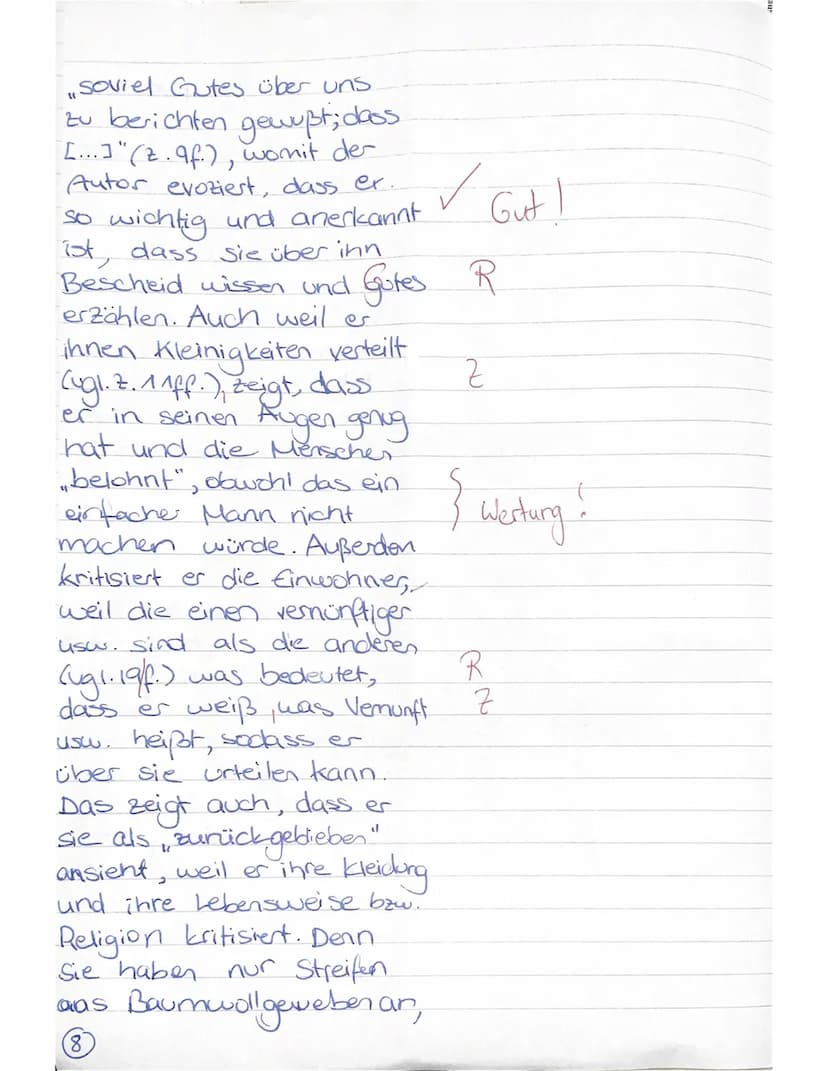 „soviel Gutes über uns
zu berichten gewußt; dass
[...]" (z. 9f.), womit der
Autor evoziert, dass er
so wichtig und anerkannt ✓ Gut!
ist, dass sie über ihn
Bescheid wissen und Gutes R
erzählen. Auch weil er
ihnen Kleinigkeiten verteilt
(vgl. z. 11ff.), zeigt, dass Z
er in seinen Augen genug
hat und die Menschen
„belohnt", obwohl das ein
einfacher Mann nicht } Wertung!
machen würde. Außerdem
kritisiert er die Einwohner,
weil die einen vernünftiger
usw. sind als die anderen
(vgl. 19f.) was bedeutet, R
dass er weiß, was Vernunft Z
usw. heißt, sodass er
über sie urteilen kann.
Das zeigt auch, dass er
sie als „zurückgeblieben"
ansieht, weil er ihre Kleidung
und ihre Lebensweise bzw.
Religion kritisiert. Denn
Sie haben nur Streifen
aus Baumwollgeweben an,
8